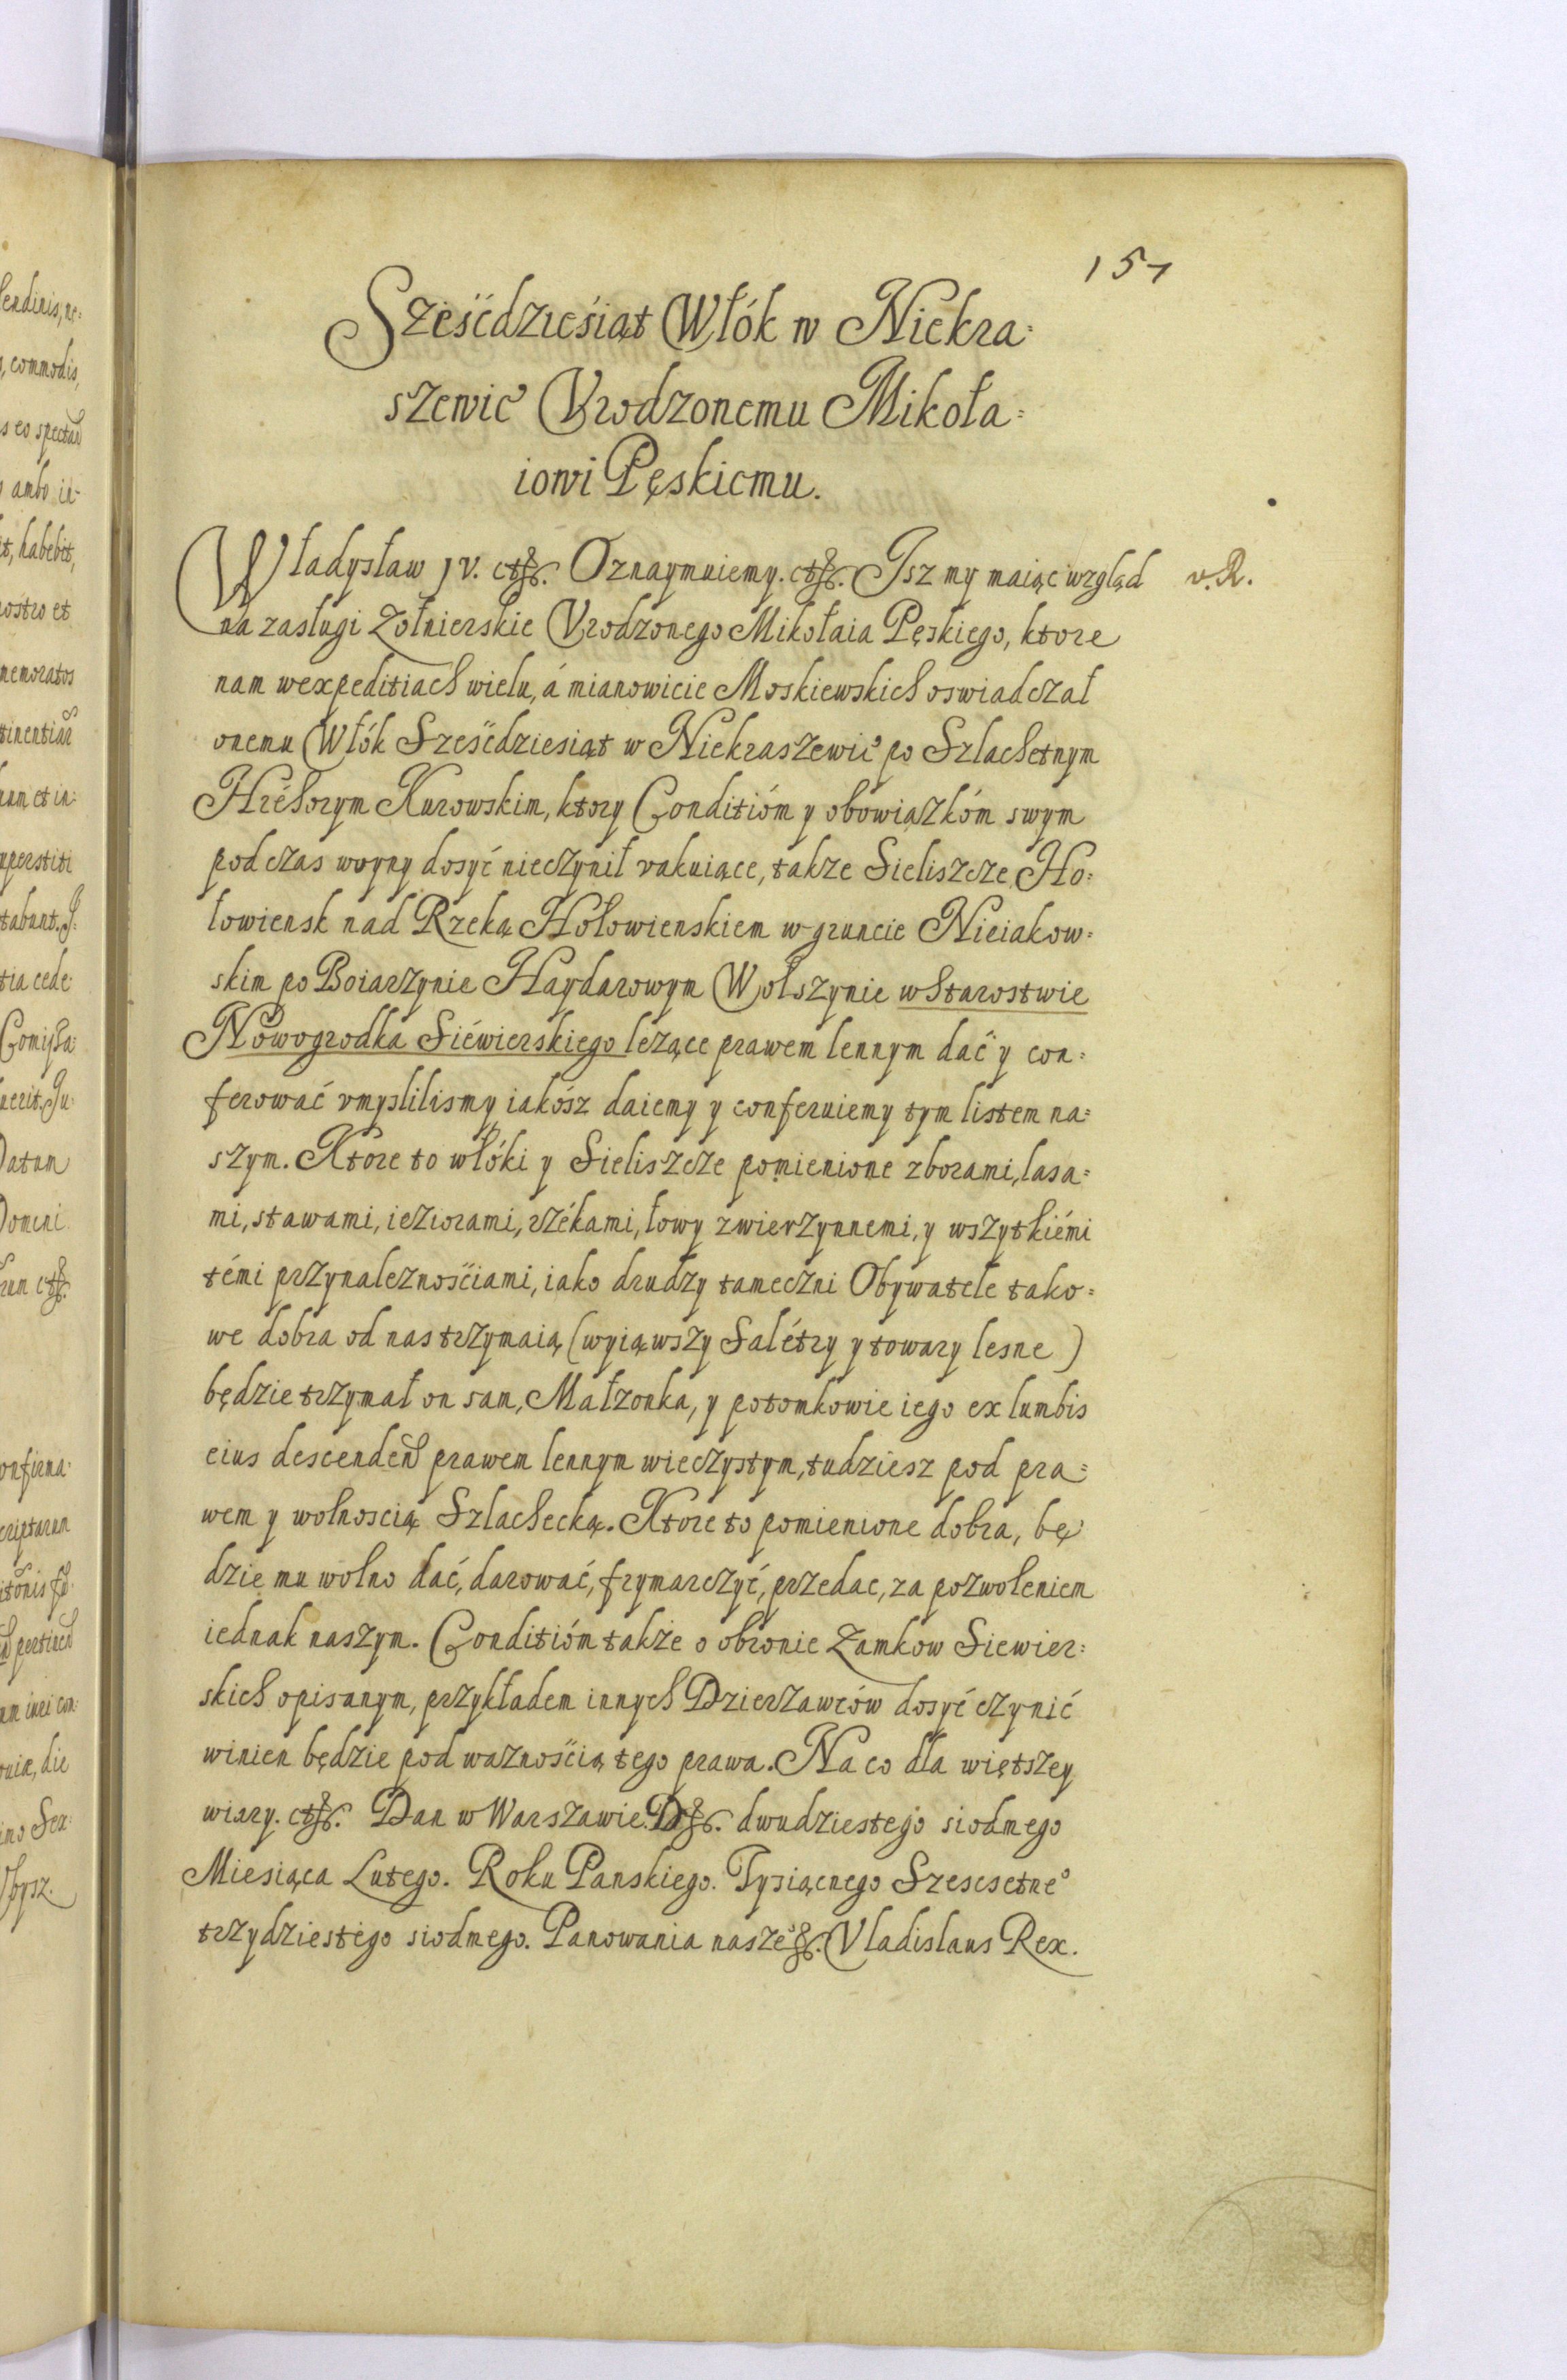 151
Sześćdzieśiąt Włók w Niekra=
szewic Vrodzonemu Mikoła=
iowi Pęskiemu.
Władysław IV. etc. Oznaymuiemy. etc. Isz my maiąc wzgląd v. R.
na zasługi Zołnierskie Vrodzonego Mikołaia Pęskiego, ktore
nam wexpeditiach wielu, á mianowicie Moskiewskich oswiadczał
onemu Włók Sześćdziesiąt w Niekraszewic po Szlachetnym
Hréhorym Kurowskim, ktory Conditióm y obowiązkóm swym
podczas woyny dosyć nieczynił vakuiące, także Sieliszcze Ho=
łowiensk nad Rzeką Hołowienskiem w gruncie Nieiakow=
skim po Boiarzynie Haydarowym Wołszynie w Starostwie
Nowogrodka Siéwierskiego leżące prawem lennym dać y con=
ferować vmyslilismy iakósz daiemy y conferuiemy tym listem na=
szym. Ktore to włóki y Sieliszcze pomienione zborami, lasa=
mi, stawami, ieziorami, rzékami, łowy zwierzynnemi, y wszytkiémi
témi przynaleznosciami, iako drudzy tameczni Obywatele tako=
we dobra od nas trzymaią (wyiąwszy Salétry y towary lesne)
będzie trzymał on sam, Małzonka, y potomkowie iego ex lumbis
eius descenden prawem lennym wieczystym, tudziesz pod pra=
wem y wolnoscią Szlachecką. Ktore to pomienione dobra, bę
dzie mu wolno dać, darować, frymarczyć, przedac, za pozwoleniem
iednak naszym. Conditióm także o obronie Zamkow Siewier=
skich opisanym, przykładem innych Dzierzawców dosyć czynić
winien będzie pod waznoscią tego prawa. Na co dla więtszey
wiary. etc. Dan w Warszawie. D. dwudziestego siodmego
Miesiąca Lutego. Roku Panskiego. Tysiącnego Szescsetneo
trzydziestego siodmego. Panowania naszeo etc. Vladislaus Rex.